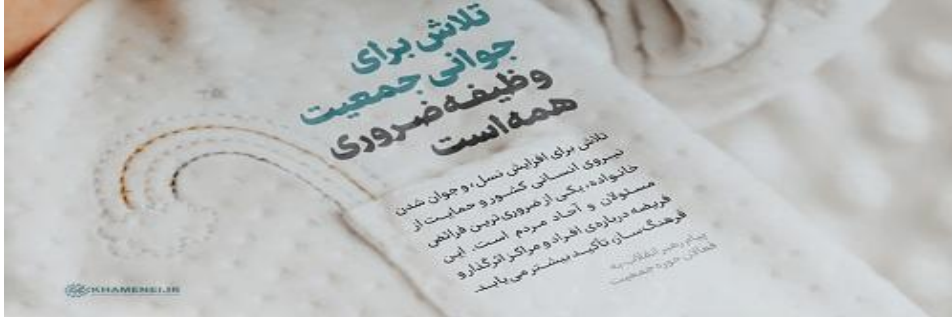 تلاش برای
جوانی جمعیت
وظیفه ضروری
همه است
تلاش برای افزایش نسل، و جوان شدن
نیروی انسانی کشور و حمایت از
خانواده، یکی از ضروری‌ترین فرائض
مسئولان و آحاد مردم است. این
فریضه درباره‌ی افراد و مراکز اثرگذار و
فرهنگ‌ساز، تأکید بیشتر می‌یابد.
پیام رهبر انقلاب به
فعالان حوزه جمعیت
KHAMENEI.IR